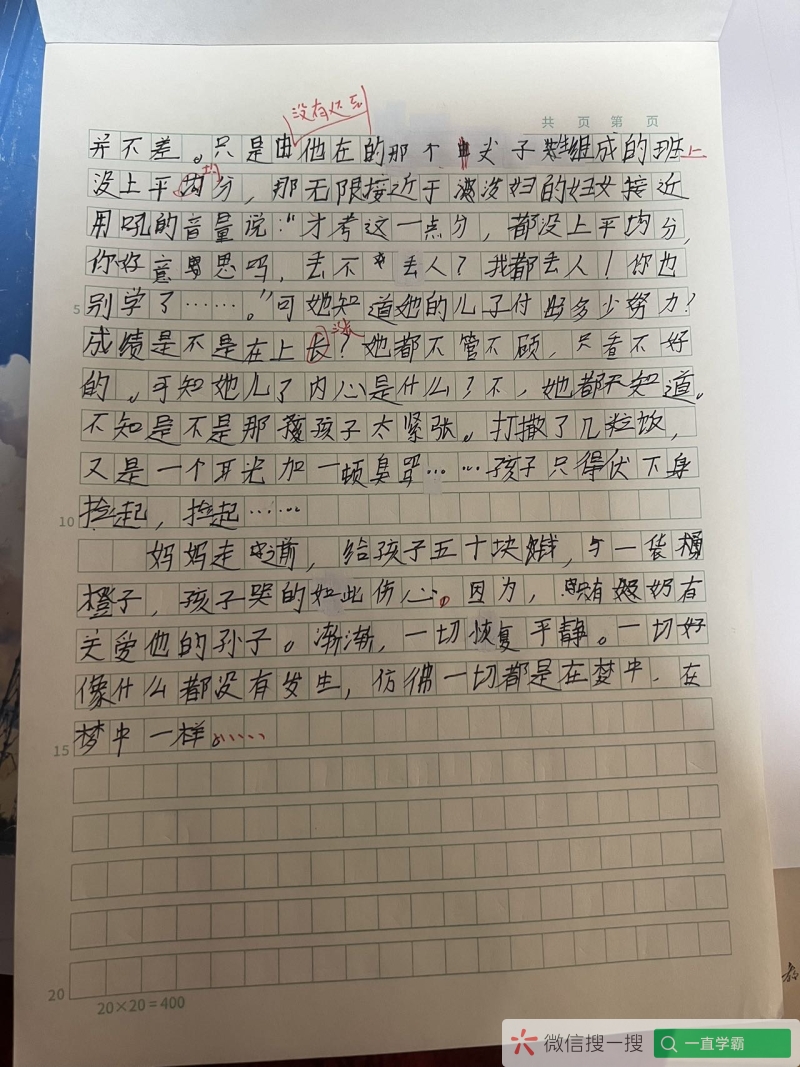 没有达到
共 页 第 页
并不差。只是由他在的那个尖子组成的班上
没上平均分，那无限接近于泼妇的妇女接近
用吼的音量说：“才考这一点分，都没上平均分，
你好意思吗，丢不丢人？我都丢人！你也
5 别学了……。”可她知道她的儿子付出多少努力？
成绩是不是在上长？她都不管不顾，只看不好
的。可知她儿子内心是什么？不，她都不知道。
不知是不是那孩子太紧张。打撒了几粒饭，
又是一个耳光加一顿臭骂……孩子只得伏下身
10 捡起，捡起……
妈妈走之前，给孩子五十块钱，与一袋
橙子，孩子哭的如此伤心。因为，只有奶奶有
关爱他的孙子。渐渐，一切恢复平静。一切好
像什么都没有发生，仿佛一切都是在梦中，在
15 梦中一样。……
20
20×20=400
微信搜一搜
一直学霸